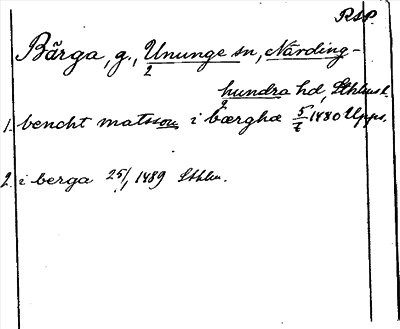 RSP.
Bärga, g., Ununge sn, Närding-
2
hundra hd, Sthlms l.
2
1. bencht matsson i bærghæ 5/7 1480 Upps.
2. i berga 25/1 1489 Sthlm.